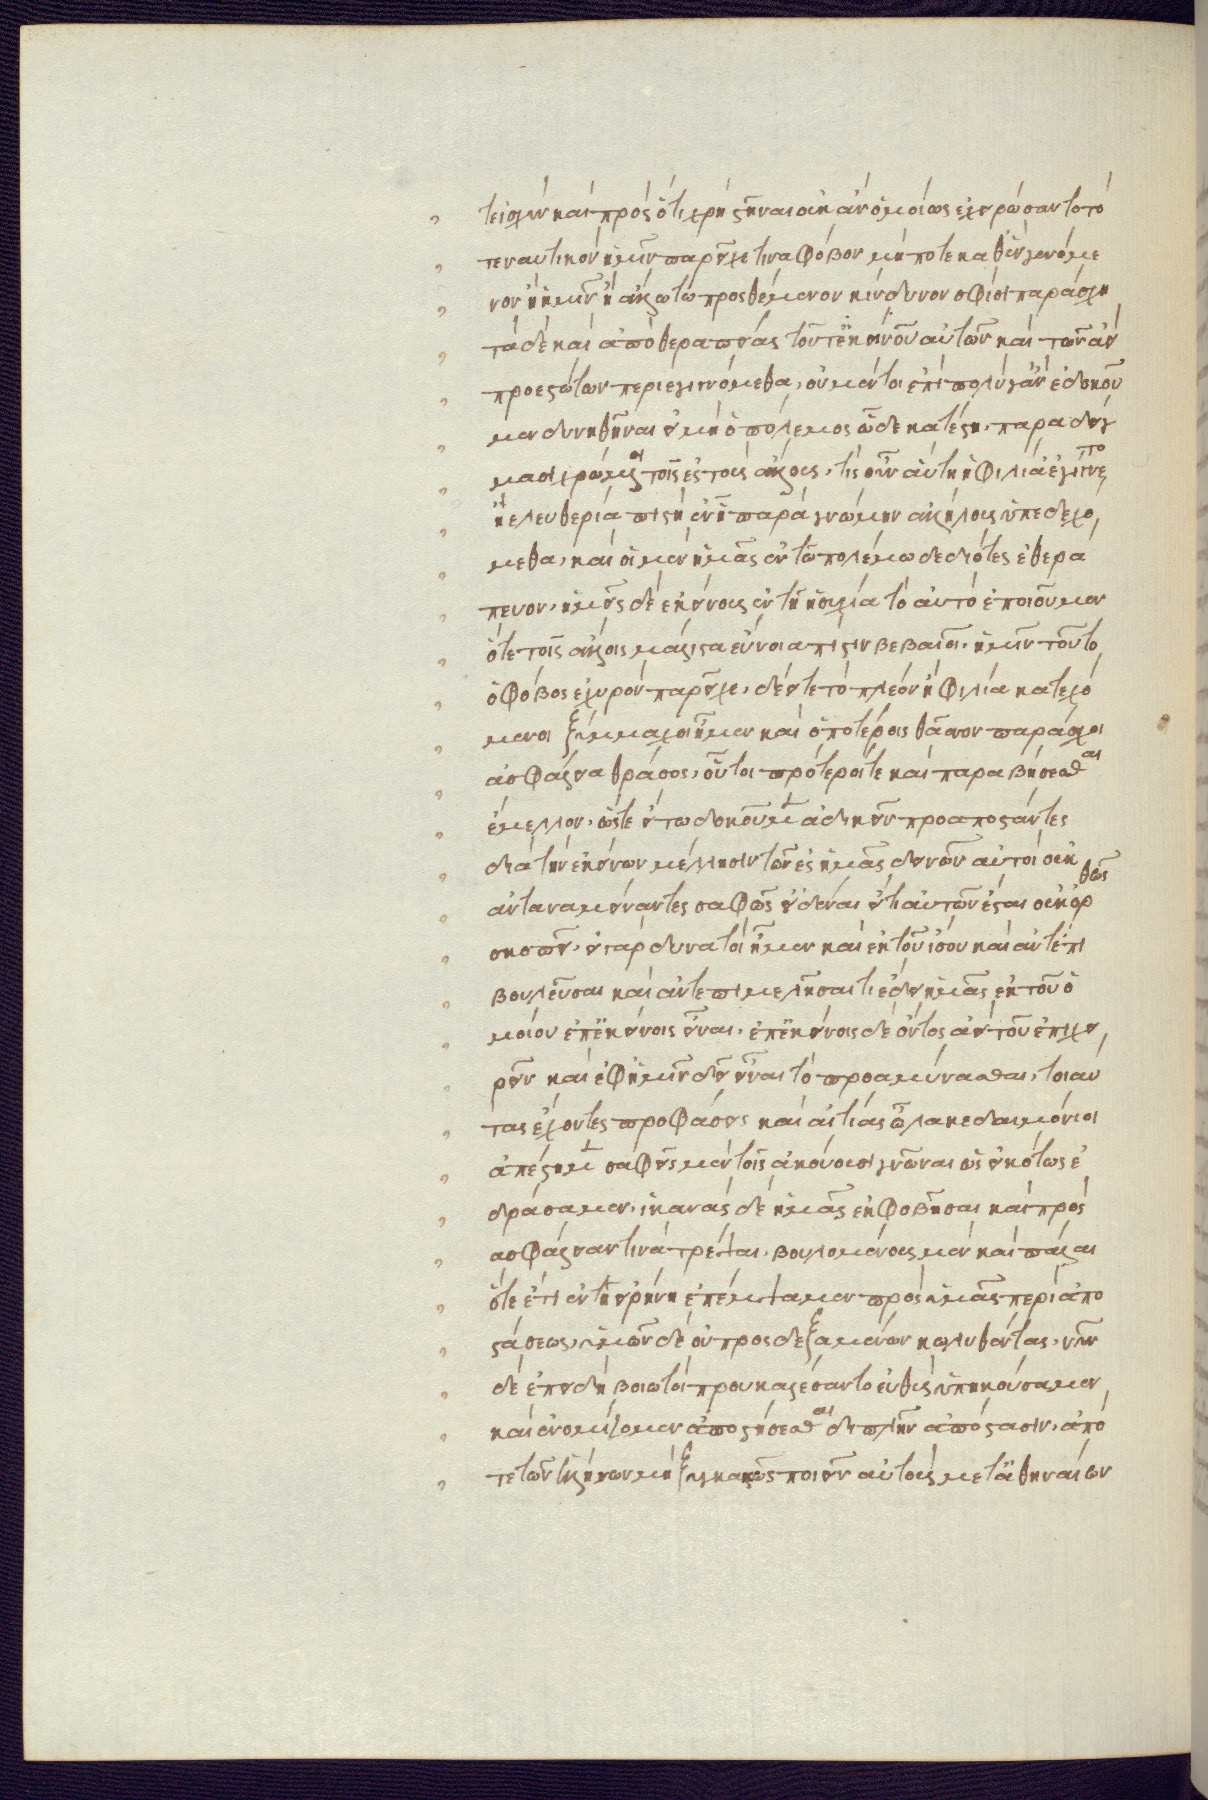 τεἰσχὺν καὶ πρὸς ὅτι χρὴ στῆναι οὐκ ἂν ὁμοίως ἐχειρώσαντο τό
τε ναυτικὸν ἡμῶν παρεῖχέ τινα φόβον μήποτε καθὲν γενόμε
νον ἢ ὑμῖν ἢ ἄλλωτω προσθέμενον κίνδυνον σφίσι παράσχη
τὰ δὲ καὶ ἀπὸ θεραπείας τοῦτε κοινοῦ αὐτῶν καὶ τῶν ἀεὶ
προεστώτων περιεγινόμεθα, οὐ μέντοι ἐπὶ πολὺ γἂν ἐδοκοῦ
μεν δυνηθῆναι εἰ μὴ ὁ πόλεμος ὧδε κατέστη. παραδείγ
μασι χρώμενοι τοῖς ἐς τοὺς ἄλλους, τίς οὖν αὐτη ἡ φιλία ἐγίγνετο
ἢ ἐλευθερία πιστὴ ἐν ἧ παρὰ γνώμην ἀλλήλους ὑπεδεχό
μεθα, καὶ οἱ μὲν ἡμᾶς ἐν τῶ πολέμω δεδιότες ἐθερά
πευον, ἡμεῖς δὲ ἐκείνους ἐν τῆ ἡσυχία τὸ αὐτὸ ἐποιοῦμεν
ὅτε τοῖς ἄλλοις μάλιστα εὔνοια πίστιν βεβαιοῖ, ἡμῖν τοῦτο
ὁ φόβος ἐχυρὸν παρεῖχε, δέει τε τὸ πλέον ἢ φιλία κατεχό
μενοι ξύμμαχοι ἦμεν καὶ ὁποτέροις θᾶσσον παράσχοι
ἀσφάλεια θράσος, οὗτοι πρότεροί τε καὶ παραβήσεσθαι
ἔμελλον. ὥστε εἴ τω δοκοῦμεν ἀδικεῖν προαποστάντες
διὰ τὴν ἐκείνων μέλλησιν τῶν ἐς ἡμᾶς δεινῶν αὐτοὶ οὐκ
ἀνταναμείναντες σαφῶς εἰδέναι εἴ τι αὐτῶν ἔσται οὐκ ὀρθῶς
σκοπεῖ, εἰ γὰρ δυνατοὶ ἦμεν καὶ ἐκ τοῦ ἴσου καὶ ἀντεπι
βουλεῦσαι καὶ ἀντεπιμελῆσαι τί ἔδει ἡμᾶς ἐκ τοῦ ὁ
μοίου ἐπἐκείνοις εἶναι. ἐπἐκείνοις δὲ ὄντος ἀεὶ τοῦ ἐπιχει
ρεῖν καὶ ἐφἡμῖν δεῖ εἶναι τὸ προαμύνασθαι, τοιαύ
τας ἔχοντες προφάσεις καὶ αἰτίας ὦ λακεδαιμόνιοι
ἀπέστημεν σαφεῖς μὲν τοῖς ἀκούουσι γνῶναι ὡς εἰκότως ἐ
δράσαμεν, ἱκανὰς δὲ ἡμᾶς ἐκφοβῆσαι καὶ πρὸς
ἀσφάλειαν τινὰ τρέψαι, βουλομένους μὲν καὶ πάλαι
ὅτε ἔτι ἐν τῆ εἰρήνη ἐπέμψαμεν πρὸς ὑμᾶς περὶ ἀπο
στάσεως, ὑμῶν δὲ οὐ προσδεξαμένων κωλυθέντας, νῦν
δὲ ἐπειδὴ βοιωτοὶ προυκαλέσαντο εὐθὺς ὑπηκούσαμεν
καὶ ἐνομίζομεν ἀποστήσεσθαι διπλῆν ἀπόστασιν, ἀπό
τε τῶν ἑλλήνων μὴ ξυγκακῶς ποιεῖν αὐτοὺς μετἀθηναίων